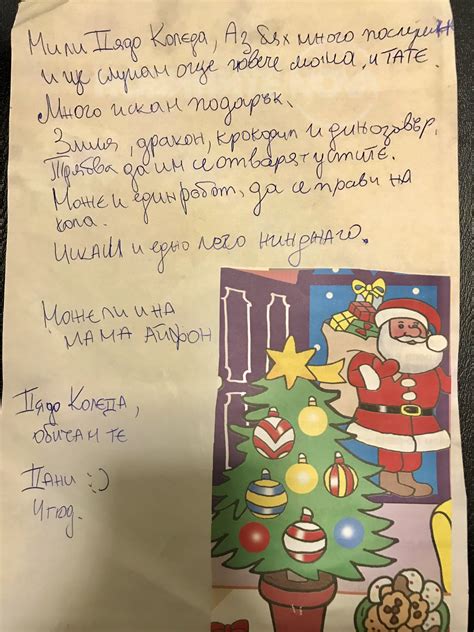 Мили Дядо Коледа, Аз бях много послушен
и ще слушам още повече мама, и ТАТЕ.
Много искам подарък.
Змия, дракон, крокодил и динозавър.
Трябва да им се отварят устите.
Може и един робот, да се прави на
кола.
Искам и едно лего нинджаго.
Може ли и на
МАМА АЙФОН
Дядо Коледа,
обичам те
Дани :)
4 год.